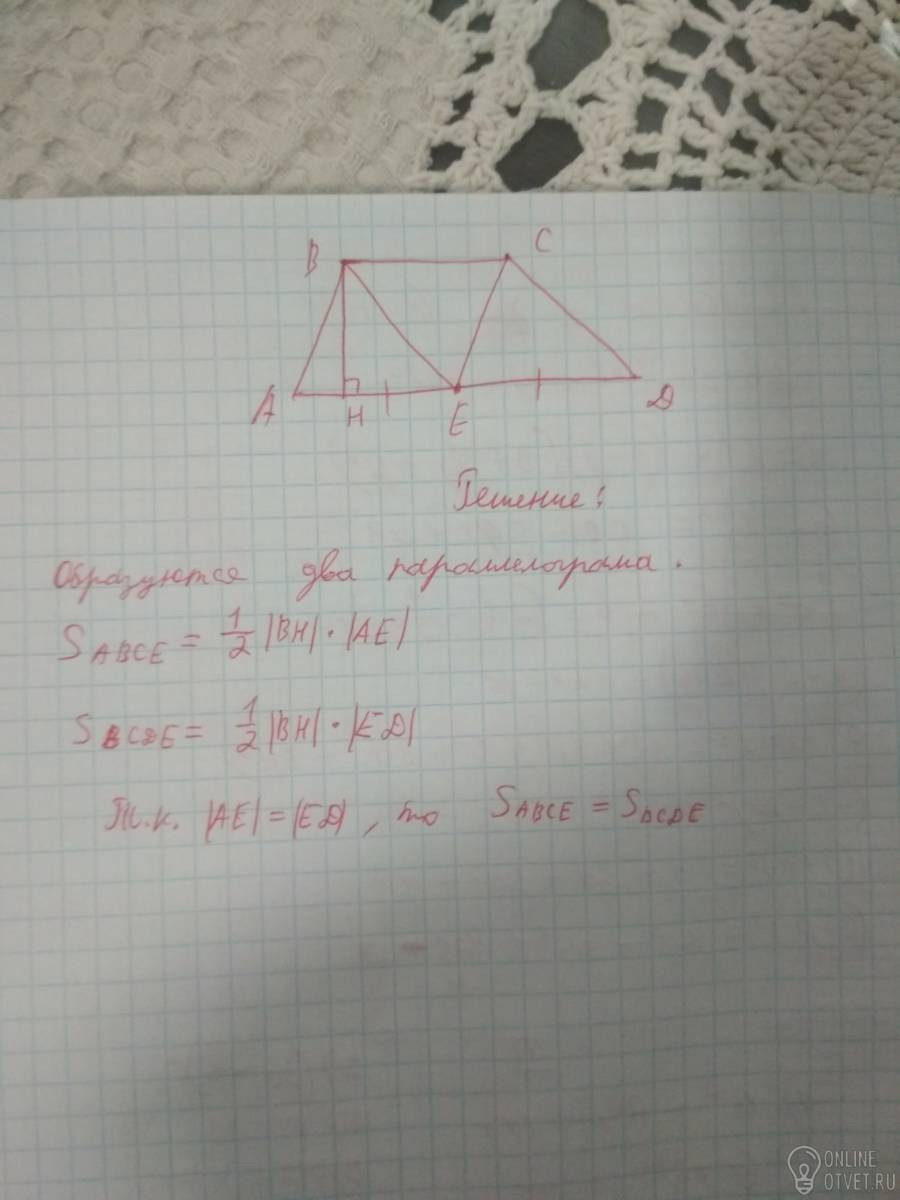 B
C
A
H
E
D
Решение:
Образуются два параллелограма.
S ABCE = 1/2 |BH| · |AE|
S BCDE = 1/2 |BH| · |ED|
Т.к. |AE| = |ED|, то S ABCE = S BCDE
ONLINE
OTVET.RU